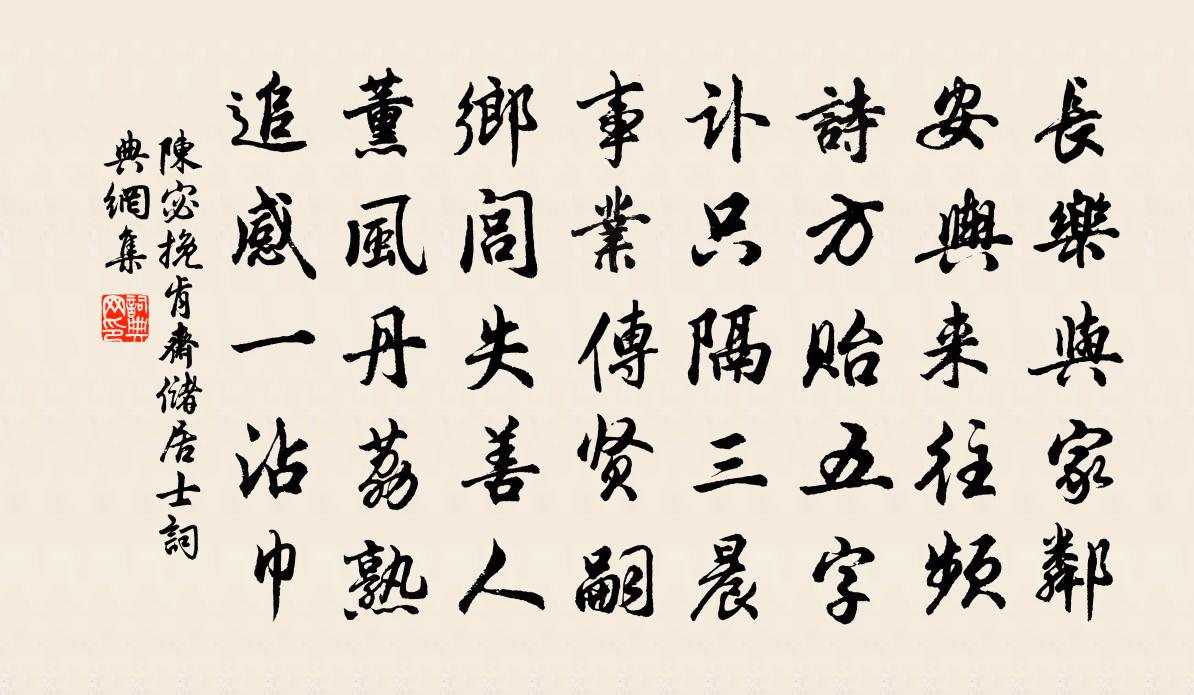 長樂與家鄰
安輿来往頻
詩方貽五字
訃只隔三晨
事業傳贤嗣
鄉閭失善人
薰風丹荔熟
追感一沾巾
陳宓挽肯齋儲居士詞
典網集
詞典
网印